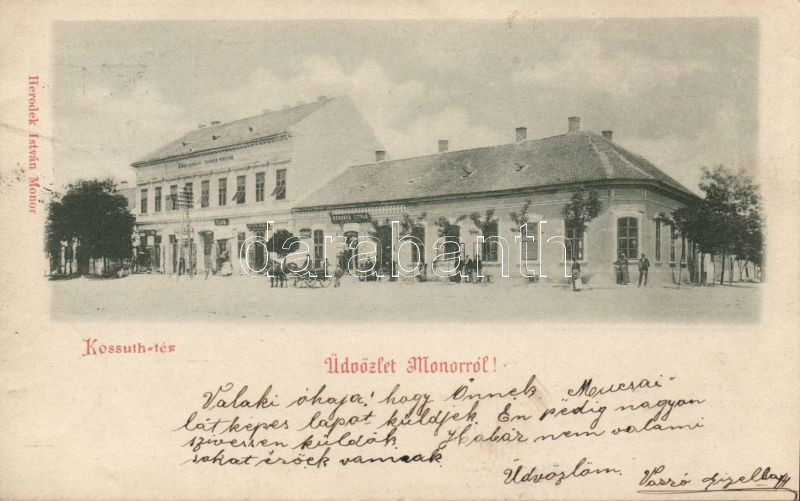 Herodek István Monor
darabanth
Kossuth-tér
Üdvözlet Monorról!
Valaki óhaja! hogy Önnek "Mucsai"
látképes lapot küldjek. En pedig nagyon
szivessen küldök. Habár nem valami
sokat érőek vannak
Üdvözlöm. Vaszó Gizella